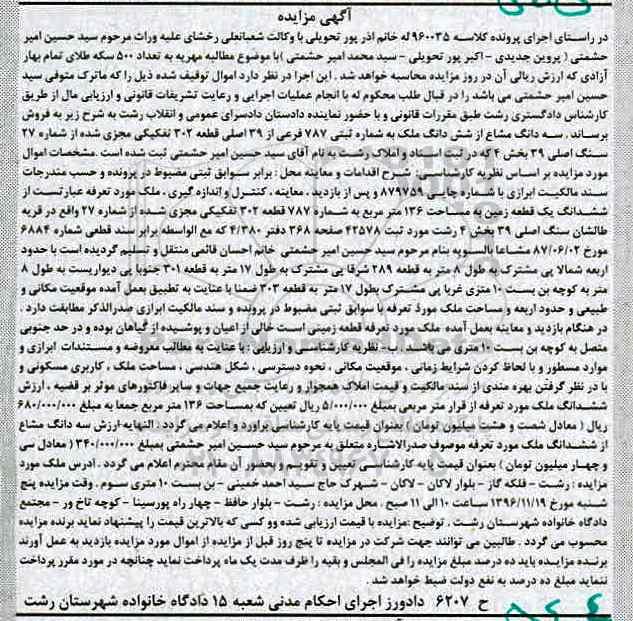 آگهی مزایده
در راستای اجرای پرونده کلاسه ۹۶۰۰۳۵ له خانم آذر پور تحویلی با وکالت شعبانعلی رخشای علیه ورات مرحوم سید حسین امیر
حشمتی ( پروین جدیدی - اکبر پور تحویلی - سید محمد امیر حشمتی ) با موضوع مطالبه مهریه به تعداد ۵۰۰ سکه طلای تمام بهار
آزادی که ارزش ریالی آن در روز مزایده محاسبه خواهد شد . این اجرا در نظر دارد اموال توقیف شده ذیل را که ماترک متوفی سید
حسین امیر حشمتی می باشد را در قبال طلب محکوم له با انجام عملیات اجرایی و رعایت تشریفات قانونی و ارزیابی مال از طریق
کارشناس دادگستری رشت طبق مقررات قانونی و با حضور نماینده دادستان دادسرای عمومی و انقلاب رشت به شرح زیر به فروش
برساند . سه دانگ مشاع از شش دانگ ملک به شماره ثبتی ۷۸۷ فرعی از ۳۹ اصلی قطعه ۳۰۲ تفکیکی مجزی شده از شماره ۲۷
سنگ اصلی ۳۹ بخش ۴ که در ثبت اسناد و املاک رشت به نام آقای سید حسین امیر حشمتی ثبت شده است .مشخصات اموال
مورد مزایده بر اساس نظریه کارشناسی: شرح اقدامات و معاینه محل : برابر سوابق ثبتی مضبوط در پرونده و حسب مندرجات
سند مالکیت ابرازی با شماره چاپی ۸۷۹۷۵۹ و پس از بازدید ، معاینه ، کنترل و اندازه گیری ، ملک مورد تعرفه عبارتست از
ششدانگ یک قطعه زمین به مساحت ۱۳۶ متر مربع به شماره ۷۸۷ قطعه ۳۰۲ تفکیکی مجزی شده از شماره ۲۷ واقع در قریه
طالشان سنگ اصلی ۳۹ بخش ۴ رشت مورد ثبت ۴۲۵۷۸ صفحه ۳۶۸ دفتر ۴/۳۸۰ که مع الواسطه برابر سند قطعی شماره ۶۸۸۴
مورخ ۸۷/۰۶/۰۲ مشاعا بالسویه بنام مرحوم سید حسین امیر حشمتی خانم احسان قائمی منتقل و تسلیم گردیده است با حدود
اربعه شمالا پی مشترک به طول ۸ متر به قطعه ۲۸۹ شرقا پی مشترک به طول ۱۷ متر به قطعه ۳۰۱ جنوبا پی دیواریست به طول ۸
متر به کوچه بن بست ۱۰ متری غربا پی مشترک بطول ۱۷ متر به قطعه ۳۰۳ ضمنا با عنایت به تطبیق بعمل آمده موقعیت مکانی و
طبیعی و حدود اربعه و مساحت ملک مورد تعرفه با سوابق ثبتی مضبوط در پرونده و سند مالکیت ابرازی صدرالذکر مطابقت دارد .
در هنگام بازدید و معاینه بعمل آمده ملک مورد تعرفه قطعه زمینی است خالی از اعیان و پوشیده از گیاهان بوده و در حد جنوبی
متصل به کوچه بن بست ۱۰ متری می باشد . نظریه کارشناسی و ارزیابی : با عنایت به مطالب معروضه و مستندات ابرازی و
موارد مسطور و با لحاظ کردن شرایط زمانی ، موقعیت مکانی ، نحوه دسترسی ، شکل هندسی ، مساحت ملک ، کاربری مسکونی و
با در نظر گرفتن بهره مندی از سند مالکیت و قیمت املاک همجوار و رعایت جمیع جهات و سایر فاکتورهای موثر بر قضیه ، ارزش
ششدانگ ملک مورد تعرفه از قرار متر مربعی بمبلغ ۵/۰۰۰/۰۰۰ ریال تعیین که بمساحت ۱۳۶ متر مربع جمعا به مبلغ ۶۸۰/۰۰۰/۰۰۰
ریال ( معادل شصت و هشت میلیون تومان ) بعنوان قیمت پایه کارشناسی براورد و اعلام می گردد . النهایه ارزش سه دانگ مشاع
از ششدانگ ملک مورد تعرفه موصوف صدرالاشاره متعلق به مرحوم سید حسین امیر حشمتی بمبلغ ۳۴۰/۰۰۰/۰۰۰ ( معادل سی
و چهار میلیون تومان ) بعنوان قیمت پایه کارشناسی تعیین و تقویم و بحضور آن مقام محترم اعلام می گردد . آدرس ملک مورد
مزایده : رشت - فلکه گاز - بلوار لاکان - لاکان - شهرک حاج سید احمد خمینی - بن بست ۱۰ متری سوم . وقت مزایده پنج
شنبه مورخ ۱۳۹۶/۱۱/۱۹ ساعت ۱۰ الی ۱۱ صبح . محل مزایده : رشت - بلوار حافظ - چهار راه پورسینا - کوچه تاخ ور - مجتمع
دادگاه خانواده شهرستان رشت . توضیح :مزایده با قیمت ارزیابی شده وو کسی که بالاترین قیمت را پیشنهاد نماید برنده مزایده
محسوب می گردد . طالبین می توانند جهت شرکت در مزایده تا پنج روز قبل از مزایده از اموال مورد مزایده بازدید به عمل آورند
برنده مزایده باید ده درصد مبلغ مزایده را فی المجلس و بقیه را ظرف مدت یک ماه پرداخت نماید چنانچه در مورد مقرر پرداخت
ننماید مبلغ ده درصد به نفع دولت ضبط خواهد شد .
ح ۶۲۰۷ دادورز اجرای احکام مدنی شعبه ۱۵ دادگاه خانواده شهرستان رشت